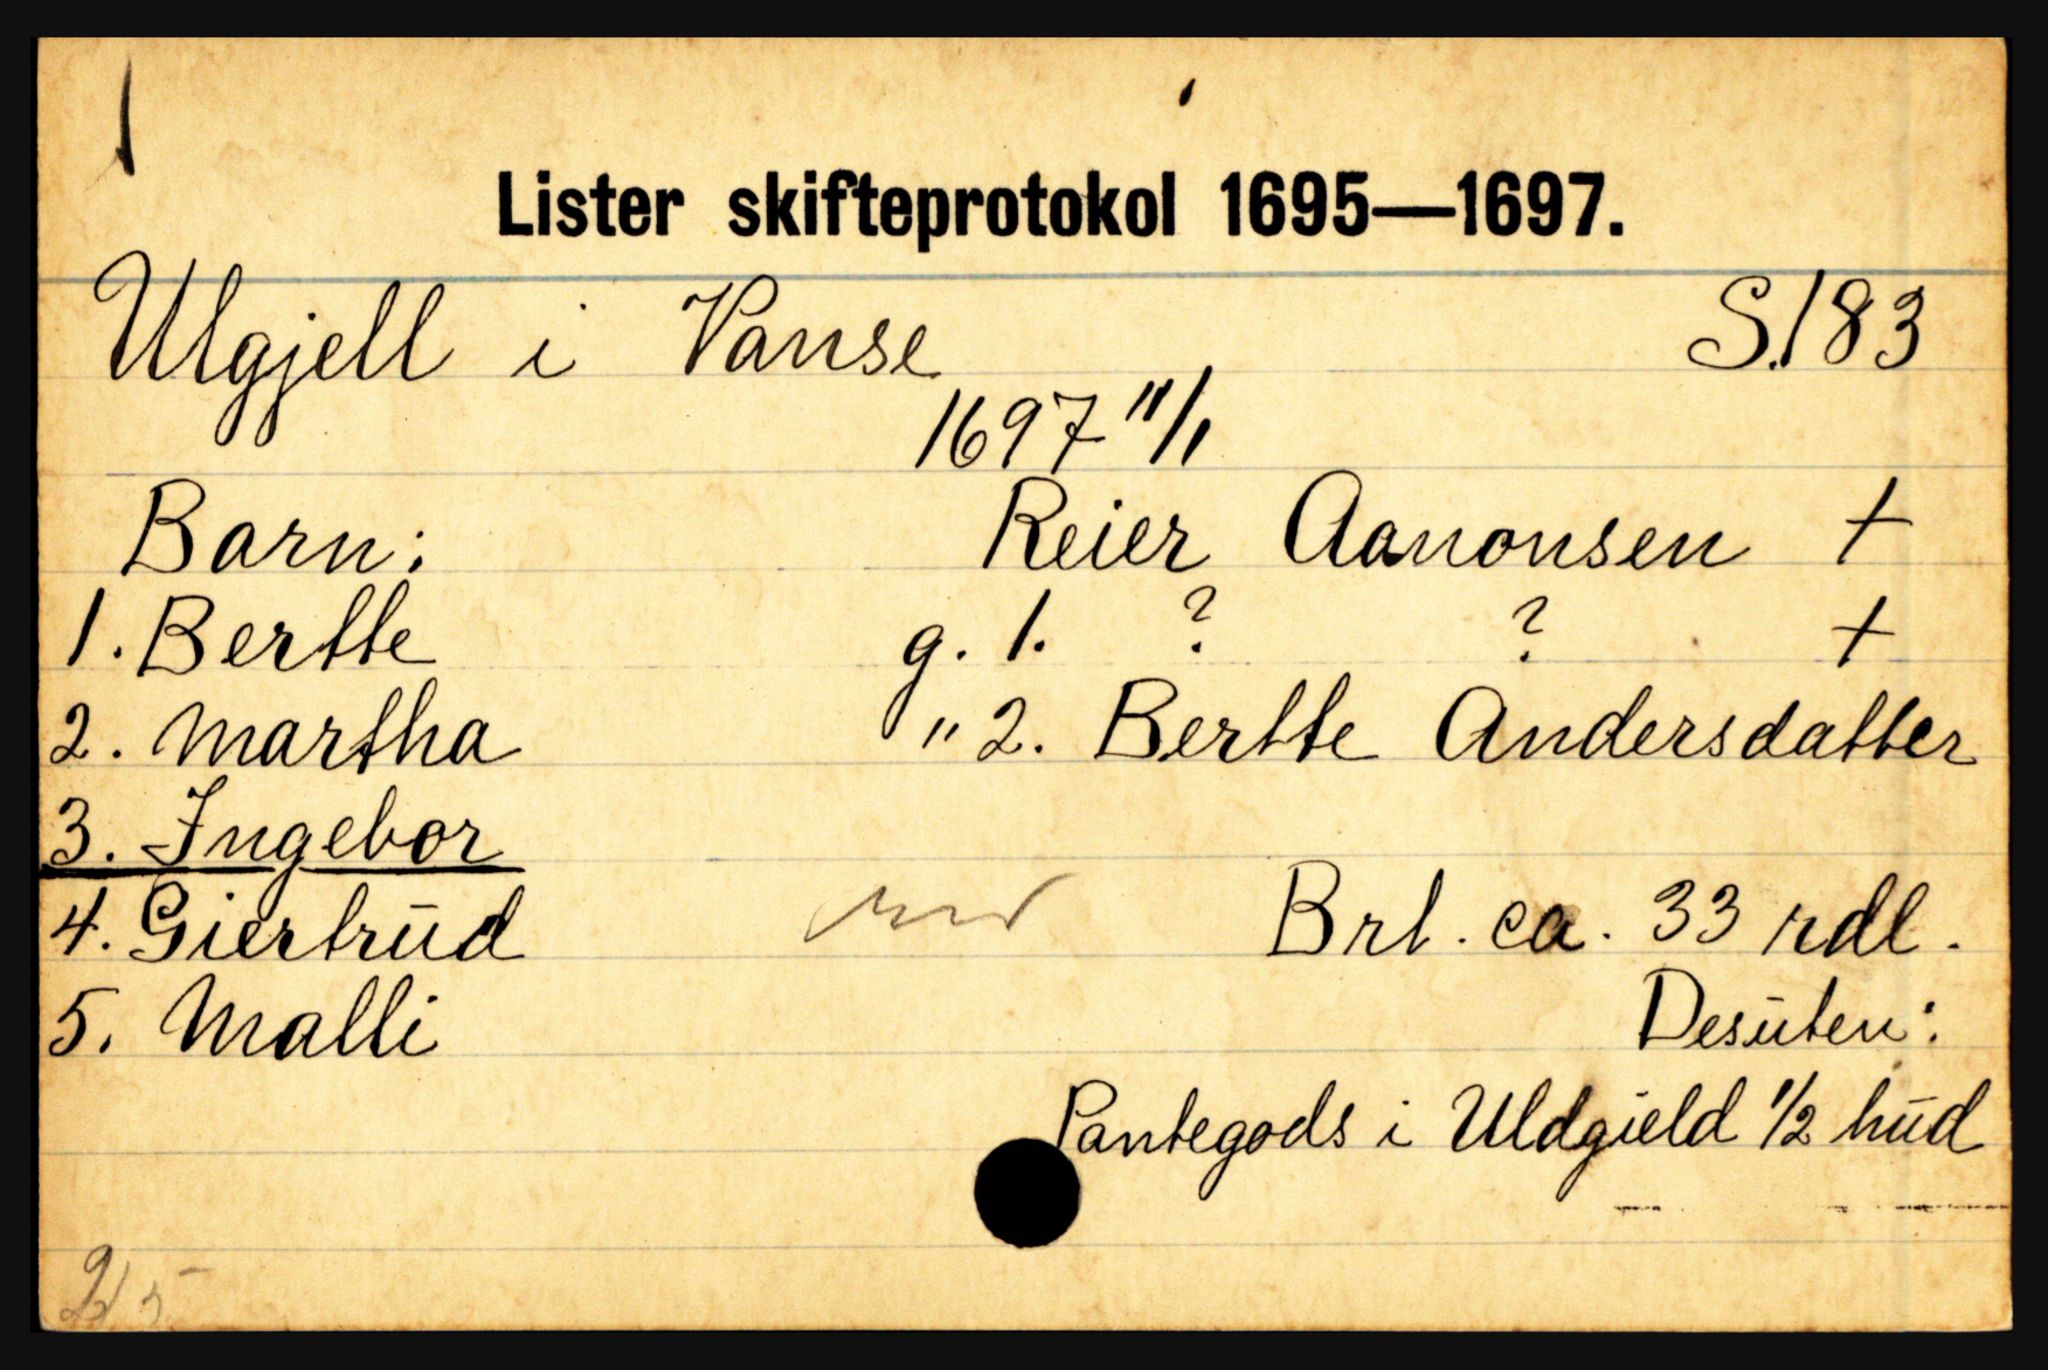 Lister skifteprotokol 1695—1697.
Ulgjell i Vanse S. 183
1697 11/1
Barn: Reier Aanonsen +
1. Bertte g. 1. ? ? +
2. Martha " 2. Bertte Andersdatter
3. Ingebor
4. Giertrūd Brt. ca. 33 rdl.
5. Malli Desūten:
Pantegods i Uldgield 1/2 hūd